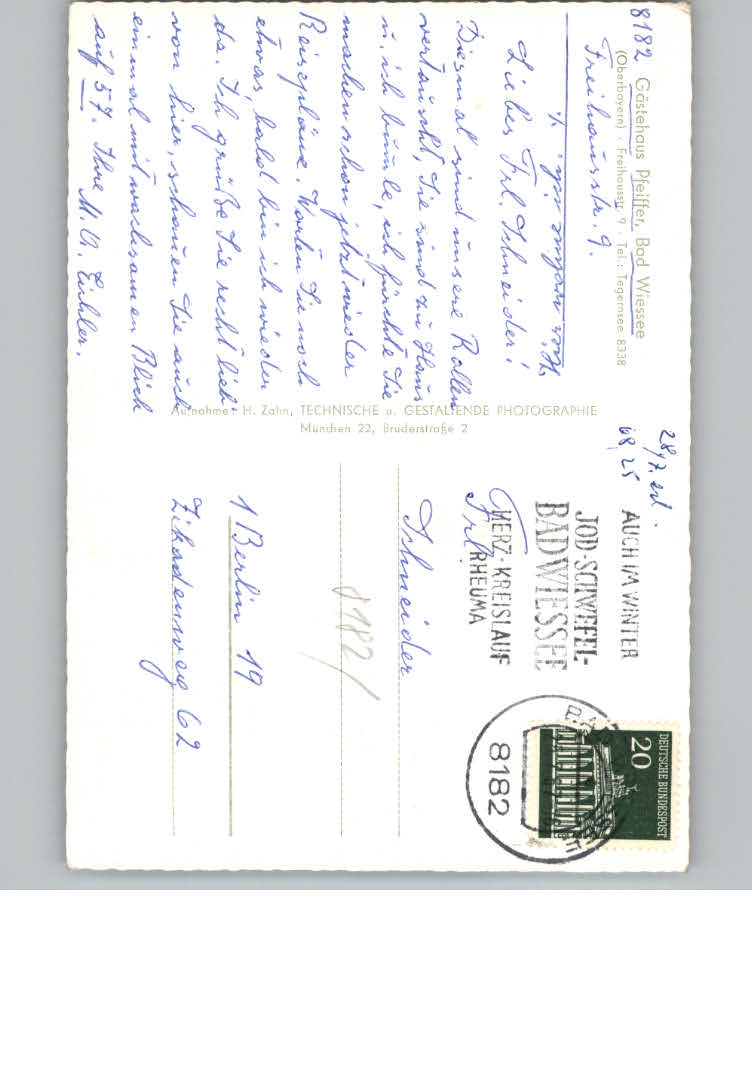 8182 Gästehaus Pfeiffer, Bad Wiessee
(Oberbayern) · Freihausstr. 9 · Tel.: Tegernsee 8338
Freihausstr. 9.
Liebes Frl. Schneider!
Diesmal sind unsere Rollen
vertauscht, Sie sind zu Haus
u. ich bumle, ich fürchte Sie
machen schon jetzt wieder
Reisepläne. Warten Sie noch
etwas, bald bin ich wieder
da. Ich grüße Sie recht lieb
von hier, schauen Sie auch
einmal mit wachsamen Blick
auf 57. Ihre M. A. Eichler.
Aufnahme: H. Zahn, TECHNISCHE u. GESTALTENDE PHOTOGRAPHIE
München 22, Bruderstraße 2
28/7. erl.
68,25
AUCH IM WINTER
JOD-SCHWEFEL-
BAD WIESSEE
HERZ-KREISLAUF
RHEUMA
DEUTSCHE BUNDESPOST
20
8182
Frl.
Schneider
8182/
1 Berlin 19
Zikadenweg 62